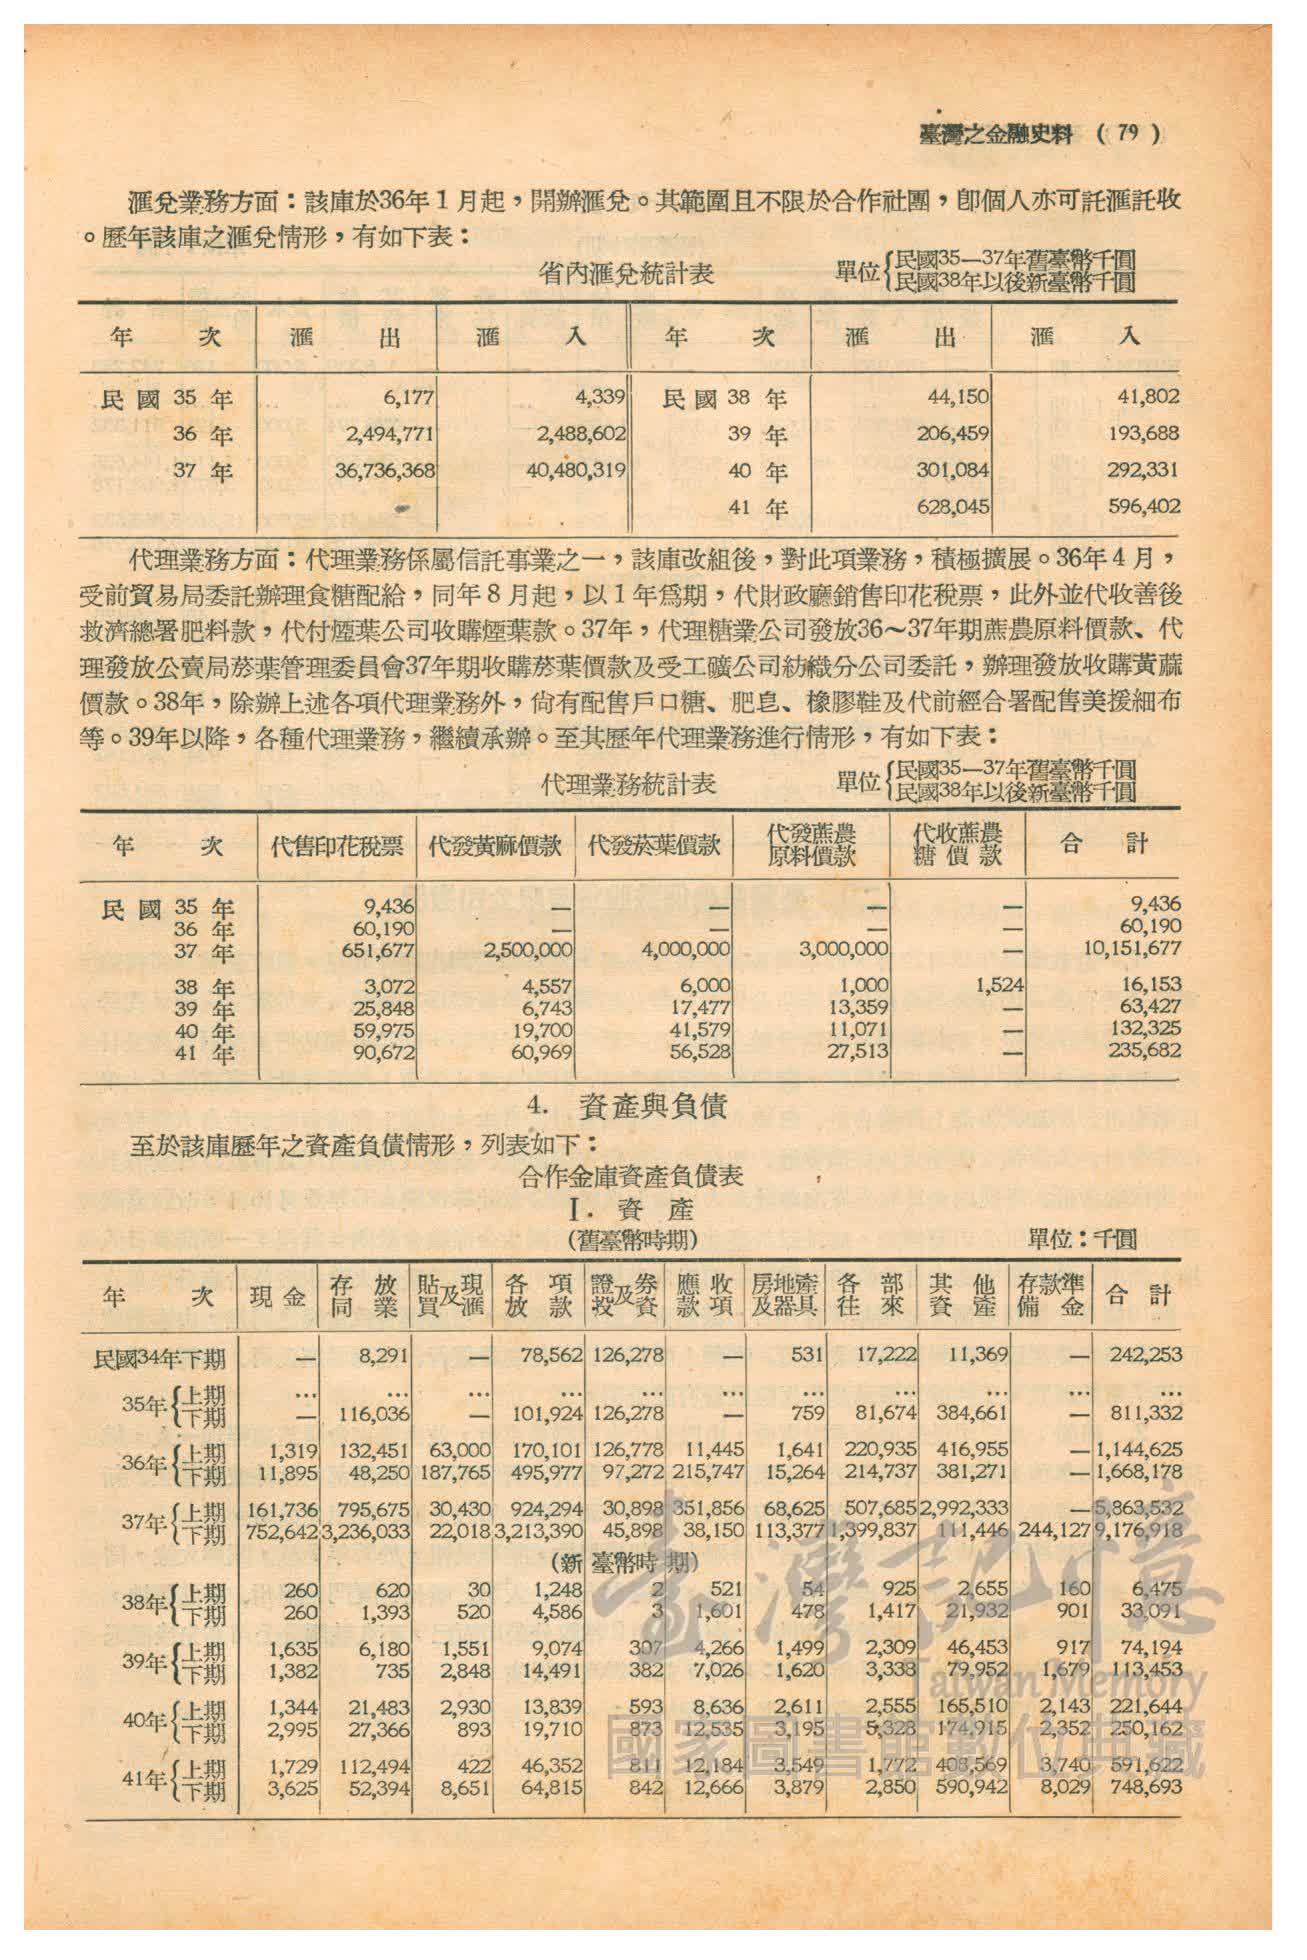 臺灣之金融史料 ( 79 )
滙兌業務方面：該庫於36年1月起，開辦滙兌。其範圍且不限於合作社團，卽個人亦可託滙託收
。歷年該庫之滙兌情形，有如下表：
省內滙兌統計表 單位{民國35—37年舊臺幣千圓
民國38年以後新臺幣千圓
年 次 滙 出 滙 入 年 次 滙 出 滙 入
民 國 35 年 6,177 4,339 民 國 38 年 44,150 41,802
36 年 2,494,771 2,488,602 39 年 206,459 193,688
37 年 36,736,368 40,480,319 40 年 301,084 292,331
41 年 628,045 596,402
代理業務方面：代理業務係屬信託事業之一，該庫改組後，對此項業務，積極擴展。36年4月，
受前貿易局委託辦理食糖配給，同年8月起，以1年爲期，代財政廳銷售印花稅票，此外並代收善後
救濟總署肥料款，代付煙葉公司收購煙葉款。37年，代理糖業公司發放36～37年期蔗農原料價款、代
理發放公賣局菸葉管理委員會37年期收購菸葉價款及受工礦公司紡織分公司委託，辦理發放收購黃蔴
價款。38年，除辦上述各項代理業務外，尙有配售戶口糖、肥皂、橡膠鞋及代前經合署配售美援細布
等。39年以降，各種代理業務，繼續承辦。至其歷年代理業務進行情形，有如下表：
代理業務統計表 單位{民國35—37年舊臺幣千圓
民國38年以後新臺幣千圓
年 次 代售印花稅票 代發黃麻價款 代發菸葉價款 代發蔗農原料價款 代收蔗農糖價款 合 計
民 國 35 年 9,436 — — — — 9,436
36 年 60,190 — — — — 60,190
37 年 651,677 2,500,000 4,000,000 3,000,000 — 10,151,677
38 年 3,072 4,557 6,000 1,000 1,524 16,153
39 年 25,848 6,743 17,477 13,359 — 63,427
40 年 59,975 19,700 41,579 11,071 — 132,325
41 年 90,672 60,969 56,528 27,513 — 235,682
4. 資產與負債
至於該庫歷年之資產負債情形，列表如下：
合作金庫資產負債表
I. 資 產
(舊臺幣時期) 單位：千圓
年 次 現 金 存放同業 貼現及買滙 各項放款 證券及投資 應收款項 房地產及器具 各部往來 其他資產 存款準備金 合 計
民國34年下期 — 8,291 — 78,562 126,278 — 531 17,222 11,369 — 242,253
35年{上期 … … … … … … … … … … …
下期 — 116,036 — 101,924 126,278 — 759 81,674 384,661 — 811,332
36年{上期 1,319 132,451 63,000 170,101 126,778 11,445 1,641 220,935 416,955 — 1,144,625
下期 11,895 48,250 187,765 495,977 97,272 215,747 15,264 214,737 381,271 — 1,668,178
37年{上期 161,736 795,675 30,430 924,294 30,898 351,856 68,625 507,685 2,992,333 — 5,863,532
下期 752,642 3,236,033 22,018 3,213,390 45,898 38,150 113,377 1,399,837 111,446 244,127 9,176,918
(新臺幣時期)
38年{上期 260 620 30 1,248 2 521 54 925 2,655 160 6,475
下期 260 1,393 520 4,586 3 1,601 478 1,417 21,932 901 33,091
39年{上期 1,635 6,180 1,551 9,074 307 4,266 1,499 2,309 46,453 917 74,194
下期 1,382 735 2,848 14,491 382 7,026 1,620 3,338 79,952 1,679 113,453
40年{上期 1,344 21,483 2,930 13,839 593 8,636 2,611 2,555 165,510 2,143 221,644
下期 2,995 27,366 893 19,710 873 12,535 3,195 5,328 174,915 2,352 250,162
41年{上期 1,729 112,494 422 46,352 811 12,184 3,549 1,772 408,569 3,740 591,622
下期 3,625 52,394 8,651 64,815 842 12,666 3,879 2,850 590,942 8,029 748,693
臺灣記憶
Taiwan Memory
國家圖書館數位典藏